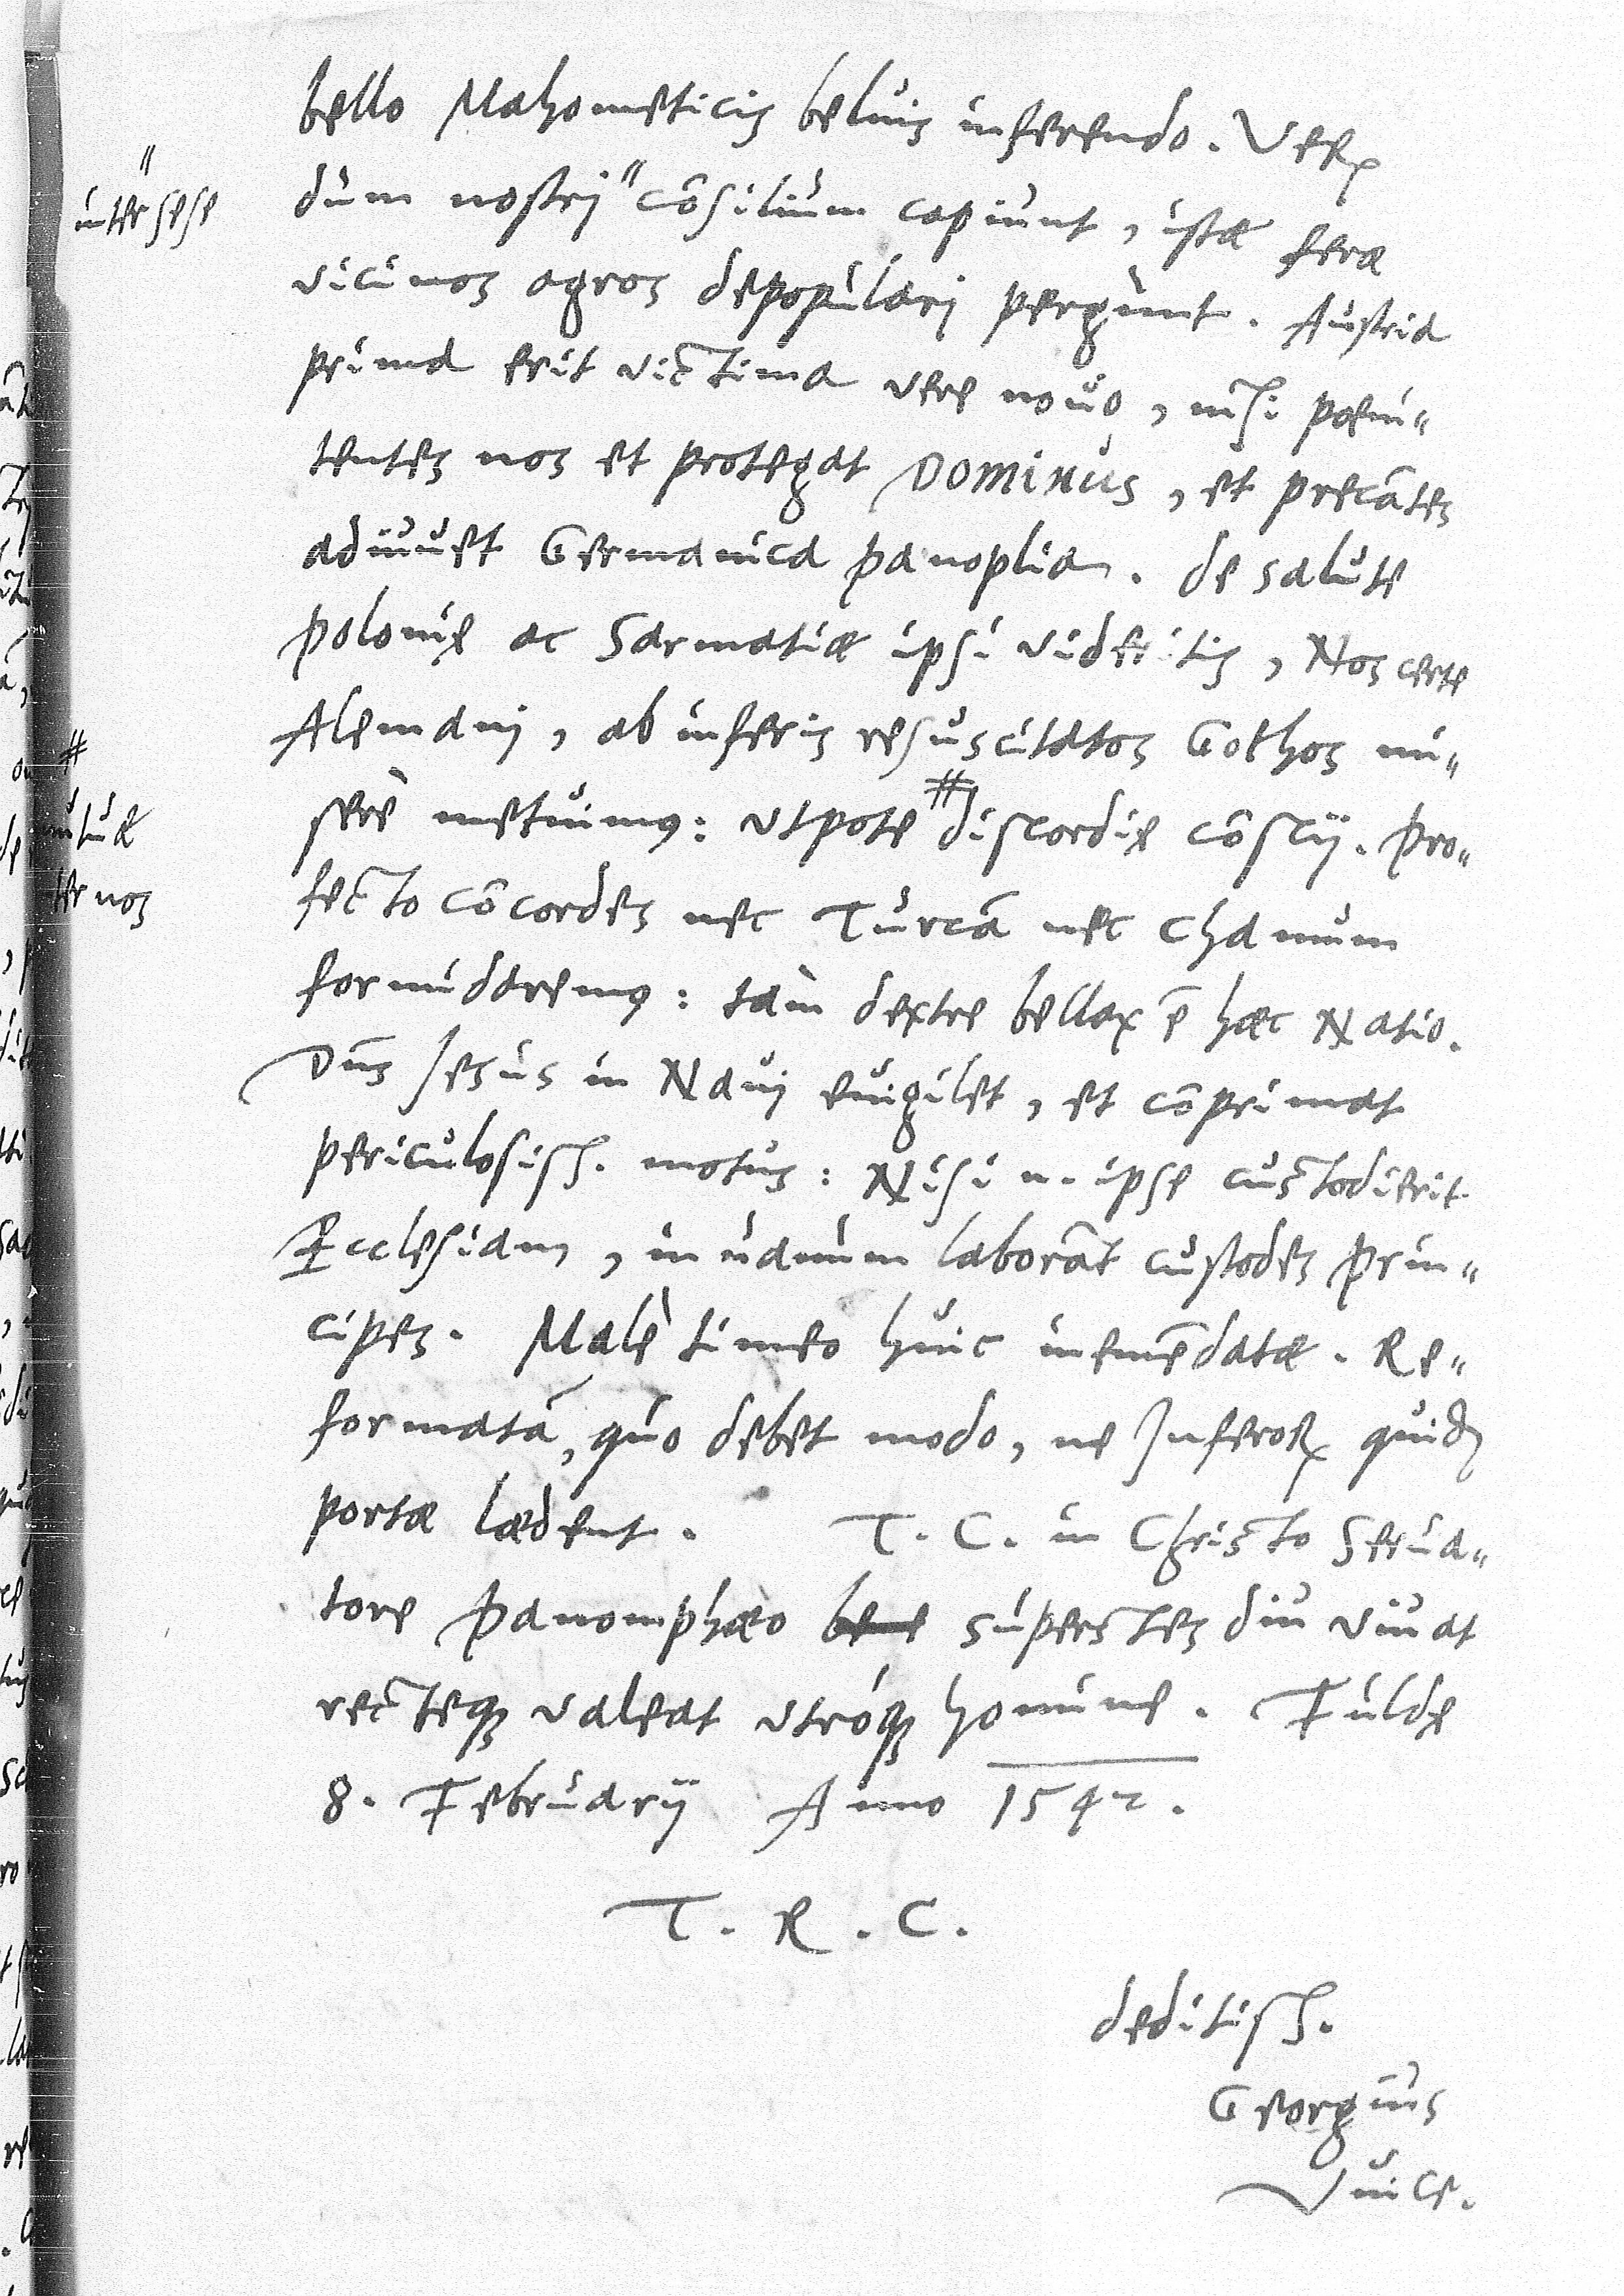 bello Mahometicis beluis inferendo. Verꝝ
inter sese
dum nostri " cōsilium capiunt, istæ feræ
vicinos agros depopulari pergunt. Austria
prima erit victima vere nouo, nisi poeni-
tentes nos et protegat DOMINUS, et precātes
adiuuet Germanica panoplia. de salute
polonię ac Sarmatiæ ipsi videritis, Nos certe
Alemani, ab inferis resuscitatos Gothos mi-
serè metuimus: vtpote # discordię cōscij. Pro-
mutuæ
ter nos
fecto cōcordes nec Turcā nec Chamum
formidaremus: tam dextre bellax ē hæc Natio.
Dn̄s Jesus in Naui euigilet, et cōprimat
periculosiss. motus: Nisi n. ipse custodierit
Ecclesiam, in uanum laborāt custodes prin-
cipes. Malè timeo huic inemēdatæ. Re-
formatā, quo debet modo, ne Inferoꝝ quidē
portæ lædent. T. C. in Christo Serua-
tore Panomphæo bene superstes diu viuat
recteqꝫ valeat vtroqꝫ homine. Fuldę
8. Februarij Anno 1542.
T. R. C.
deditiss.
Georgius
Vuice.